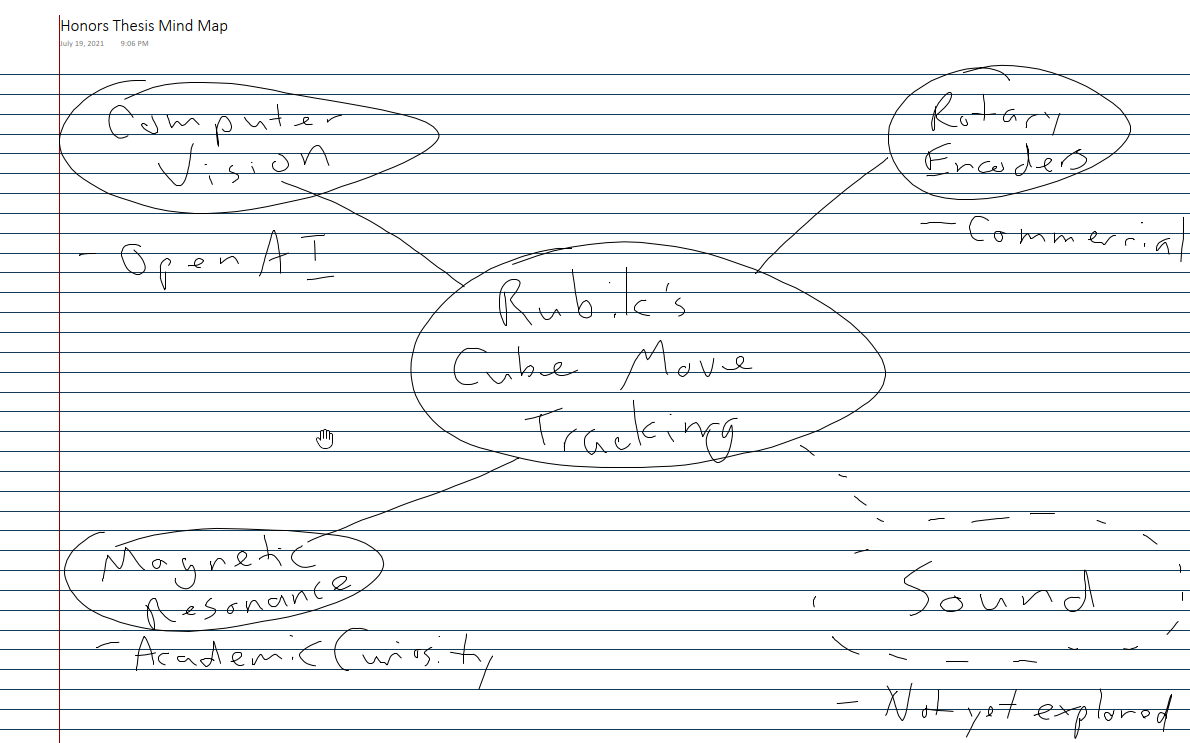 Honors Thesis Mind Map
July 19, 2021 9:06 PM
Computer
Vision
- Open AI
Rotary
Encoders
- Commercial
Rubik's
Cube Move
Tracking
Magnetic
Resonance
- Academic Curiosity
Sound
- Not yet explored